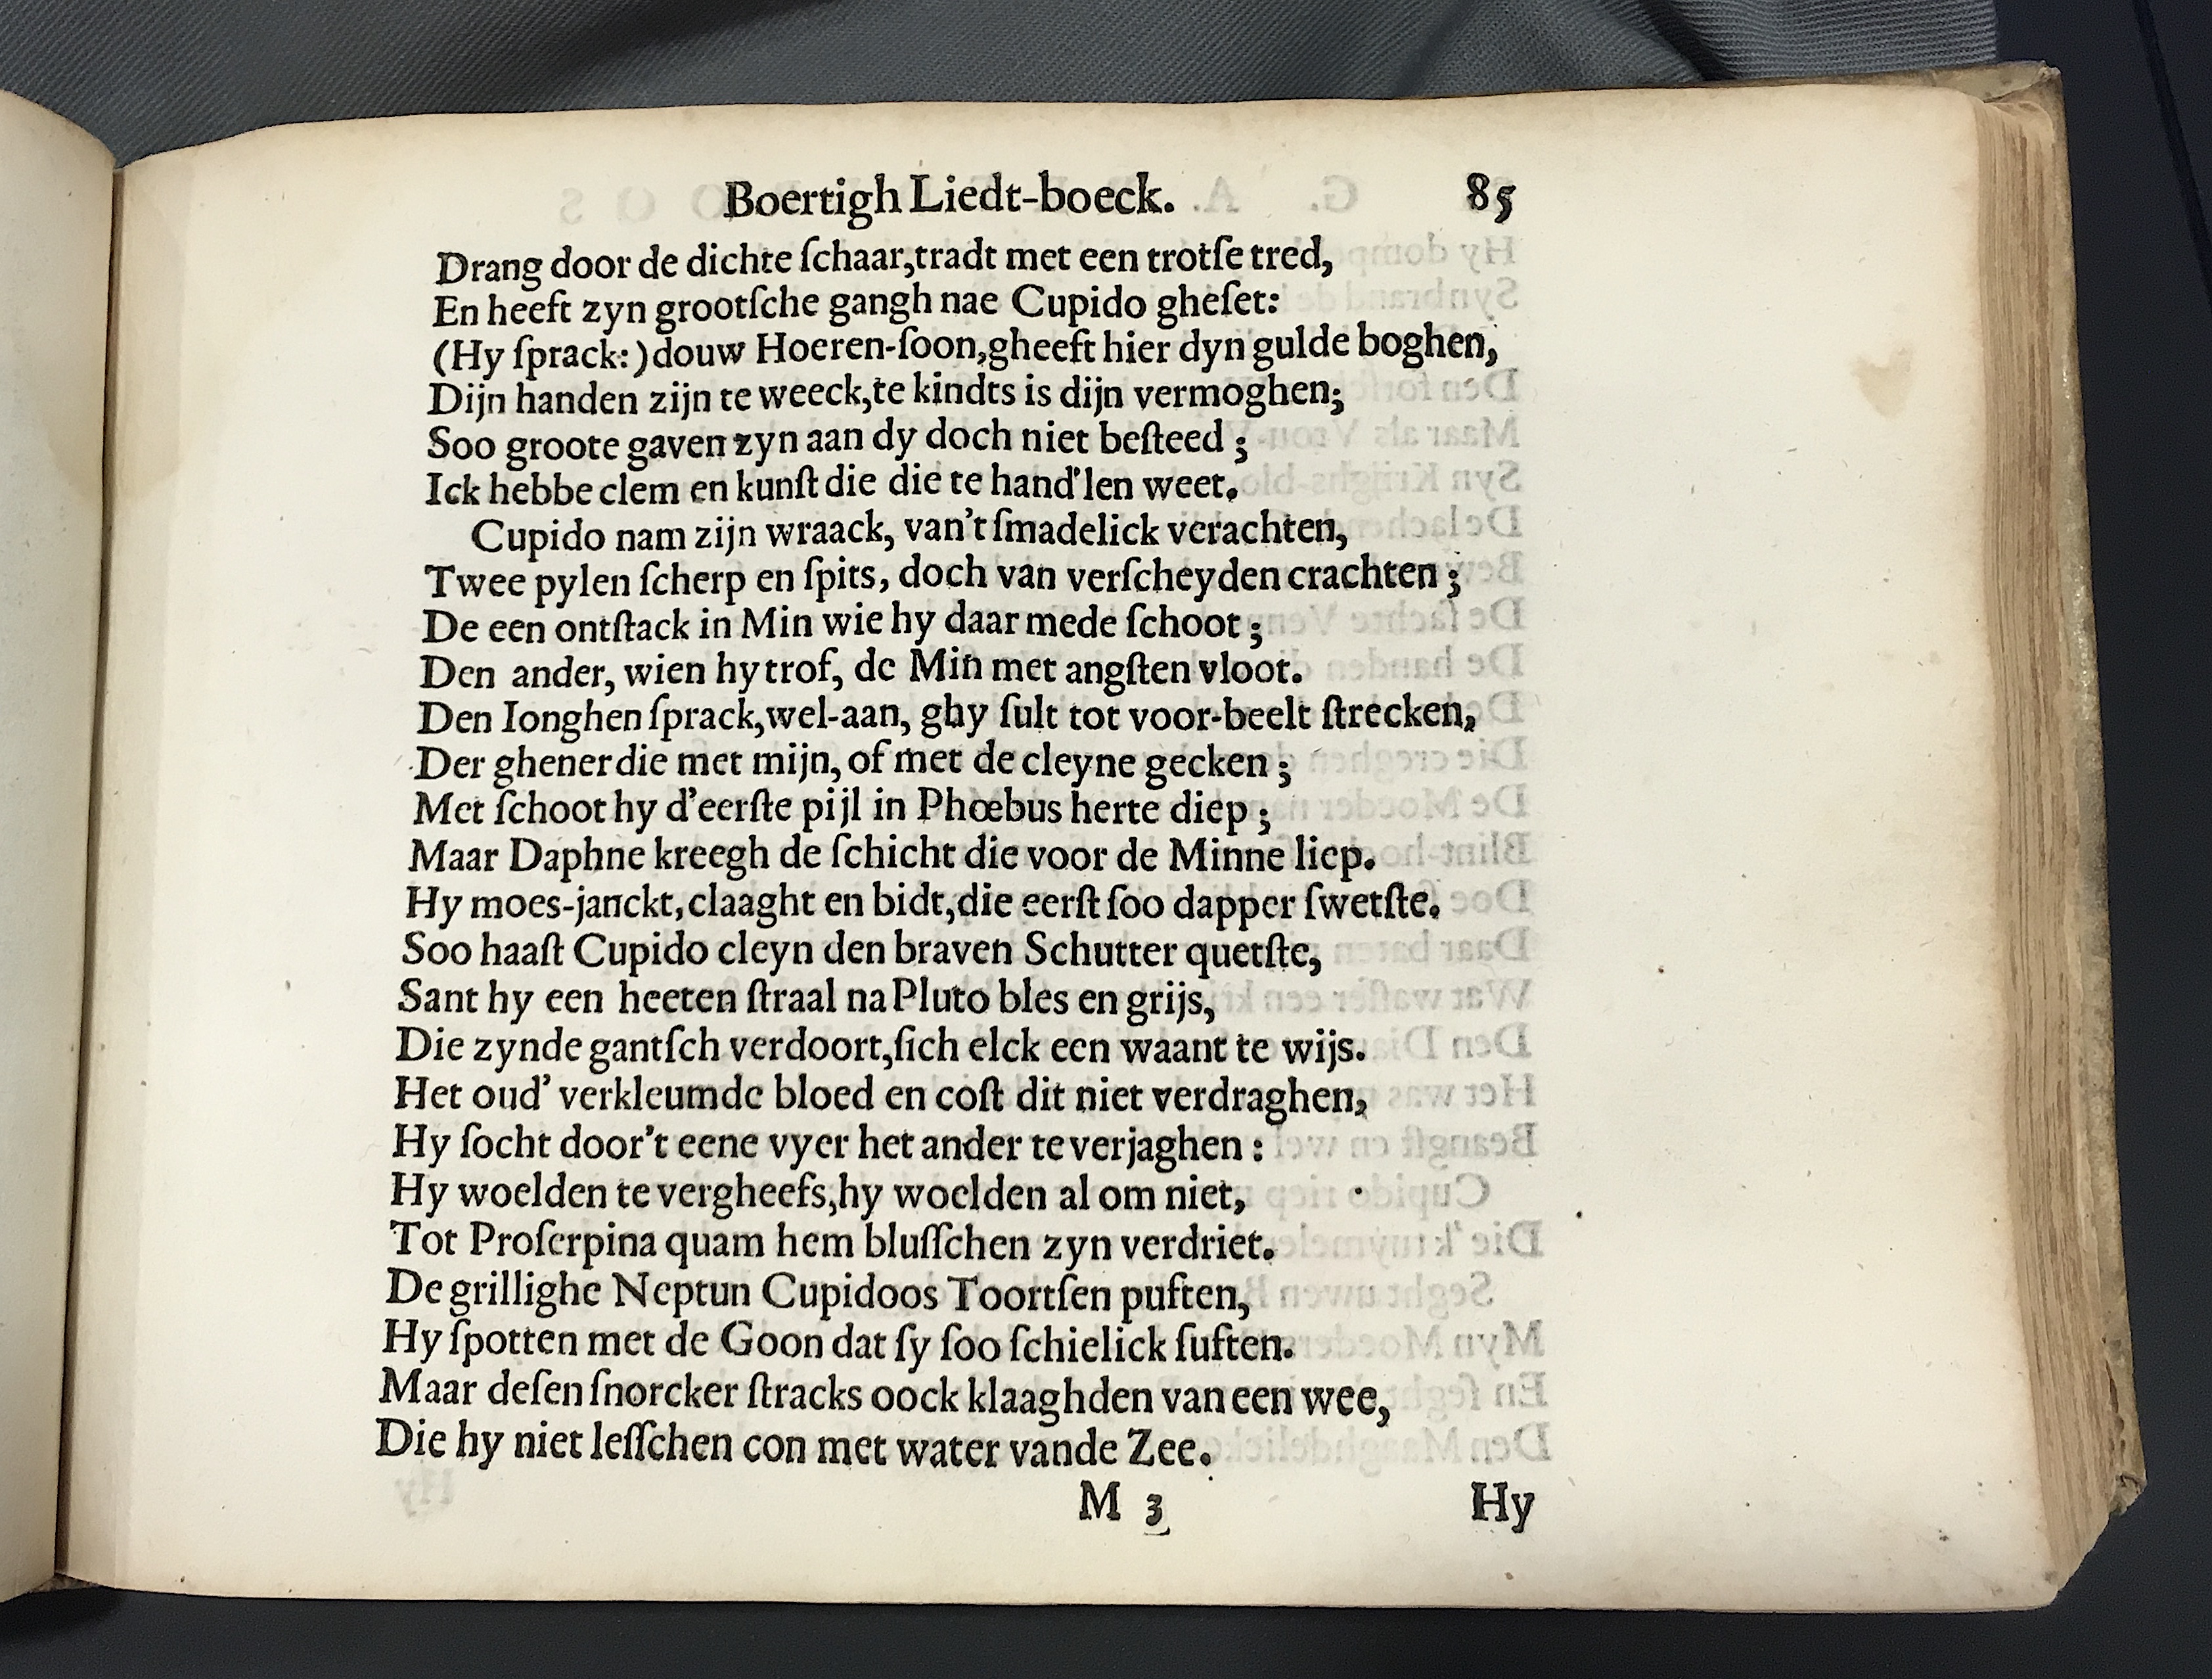 Boertigh Liedt-boeck. 85
Drang door de dichte ſchaar,tradt met een trotſe tred,
En heeft zyn grootſche gangh nae Cupido gheſet:
(Hy ſprack:)douw Hoeren-ſoon,gheeft hier dyn gulde boghen,
Dijn handen zijn te weeck,te kindts is dijn vermoghen;
Soo groote gaven zyn aan dy doch niet beſteed;
Ick hebbe clem en kunſt die die te hand'len weet.
Cupido nam zijn wraack, van't ſmadelick verachten,
Twee pylen ſcherp en ſpits, doch van verſcheyden crachten;
De een ontſtack in Min wie hy daar mede ſchoot;
Den ander, wien hy trof, de Min met angſten vloot.
Den Ionghen ſprack,wel-aan, ghy ſult tot voor-beelt ſtrecken,
Der ghener die met mijn, of met de cleyne gecken;
Met ſchoot hy d'eerſte pijl in Phœbus herte diep;
Maar Daphne kreegh de ſchicht die voor de Minne liep.
Hy moes-janckt,claaght en bidt,die eerſt ſoo dapper ſwetſte.
Soo haaſt Cupido cleyn den braven Schutter quetſte,
Sant hy een heeten ſtraal na Pluto bles en grijs,
Die zynde gantſch verdoort,ſich elck een waant te wijs.
Het oud' verkleumde bloed en coſt dit niet verdraghen,
Hy ſocht door't eene vyer het ander te verjaghen:
Hy woelden te vergheefs,hy woelden al om niet,
Tot Proſerpina quam hem bluſſchen zyn verdriet.
De grillighe Neptun Cupidoos Toortſen puften,
Hy ſpotten met de Goon dat ſy ſoo ſchielick ſuften.
Maar deſen ſnorcker ſtracks oock klaaghden van een wee,
Die hy niet leſſchen con met water vande Zee.
M 3 Hy